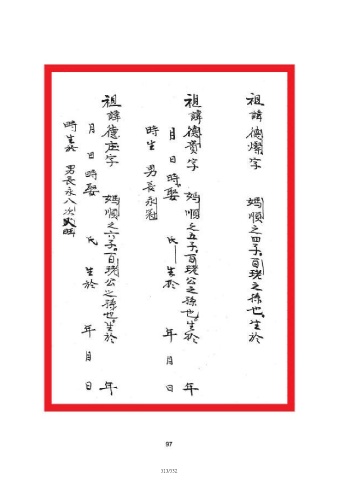 祖諱德燦字　媽順之四子，百琇之孫也，生於
祖諱德貢字　媽順之五子，百琇公之孫也，生於　年
月　日　時，娶　氏　生於　年　月　日
時生　男長永冠
祖諱德庄字　媽順之六子，百琇公之孫也，生於　年
月　日　時娶　氏　生於　年　月　日
時生於　男長永八次
97
313/352